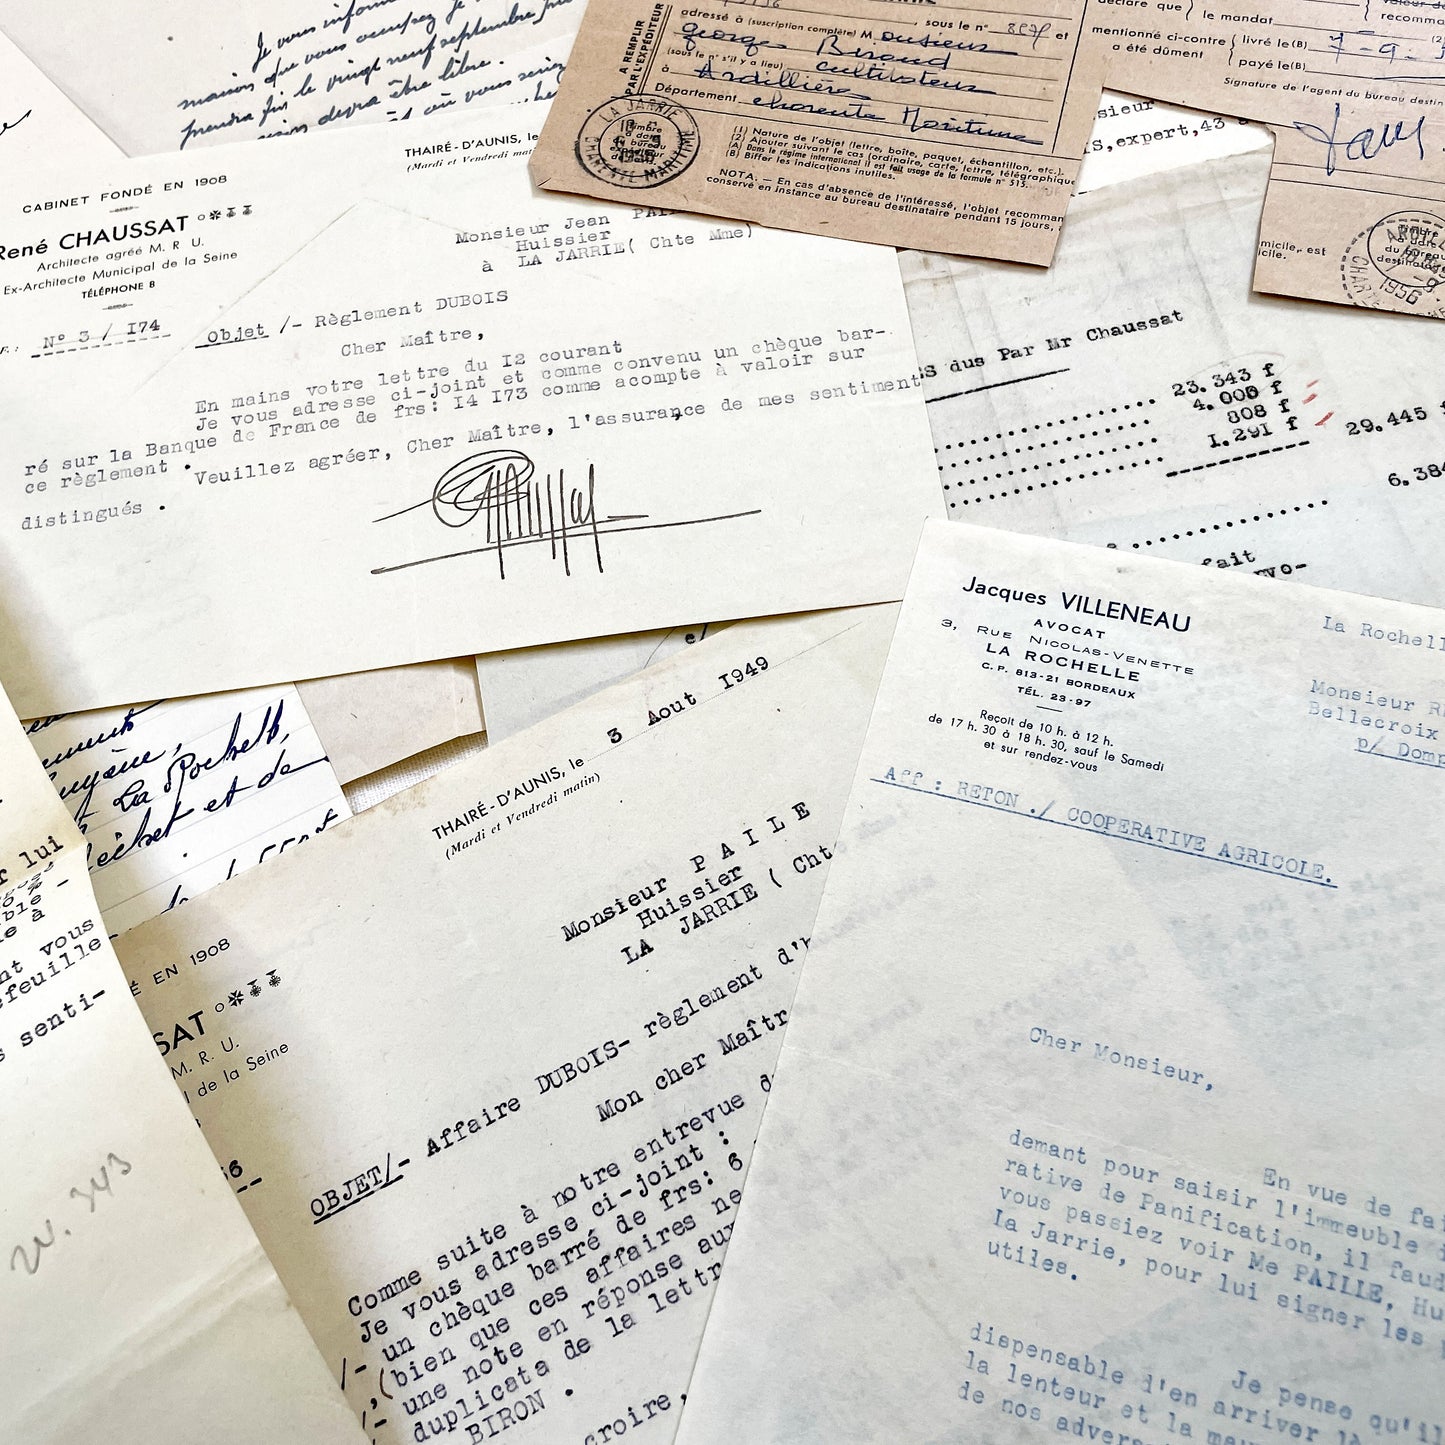 Je vous inform
maison que vous occupez je
prendra fin le vingt neuf septembre
devra être libre.
et où vous seriez
A REMPLIR
PAR L'EXPÉDITEUR
adressé à (suscription complète) Monsieur, sous le n° et
georges Biraud
(sous le n° s'il y a lieu) cultivateur
à Ardillières
Département charente Maritime
LA JARRIE
CHARENTE MARITIME
(1) Nature de l'objet (lettre, boîte, paquet, échantillon, etc.).
(2) Ajouter suivant le cas (ordinaire, carte, lettre, télégraphique
(A) Dans le régime international il est fait usage de la formule n° 515.
(B) Biffer les indications inutiles.
NOTA. — En cas d'absence de l'intéressé, l'objet recomman
conservé en instance au bureau destinataire pendant 15 jours,
déclare que le mandat
recomma
mentionné ci-contre livré le(B) 7-9-
a été dûment payé le(B)
Signature de l'agent du bureau destin
sieur
S, expert, 43
omicile, est
icile.
1956
THAIRÉ-D'AUNIS, le
(Mardi et Vendredi matin
CABINET FONDÉ EN 1908
René CHAUSSAT
Architecte agréé M. R. U.
Ex-Architecte Municipal de la Seine
TÉLÉPHONE 8
N° 3 / I74
Monsieur Jean PAI
Huissier
à LA JARRIE( Chte Mme)
Objet /- Règlement DUBOIS
Cher Maître,
En mains votre lettre du I2 courant
Je vous adresse ci-joint et comme convenu un chèque bar-
ré sur la Banque de France de frs: I4 I73 comme acompte à valoir sur
ce règlement .
Veuillez agréer, Cher Maître, l'assurance de mes sentiment
distingués .
S dus Par Mr Chaussat
23.343 f
4.000 f
808 f
I.291 f
29.445 f
6.384
fait
vo-
Jacques VILLENEAU
AVOCAT
3, RUE NICOLAS-VENETTE
LA ROCHELLE
C. P. 813-21 BORDEAUX
TÉL. 23-97
Reçoit de 10 h. à 12 h.
de 17 h. 30 à 18 h. 30, sauf le Samedi
et sur rendez-vous
La Rochell
Monsieur R
Bellecroix
p/ Domp
Aff : RETON ./ COOPERATIVE AGRICOLE.
Cher Monsieur,
En vue de fai
demant pour saisir l'immeuble d
rative de Panification, il faud
vous passiez voir Me PAILLE, Hu
la Jarrie, pour lui signer les
utiles.
Je pense qu'il
dispensable d'en arriver là
la lenteur et la mau
de nos advers
La Rochelle,
et de
r lui
able -
e à
nt vous
efeuille
s senti-
343
É EN 1908
SAT
M. R. U.
l de la Seine
THAIRÉ-D'AUNIS, le 3 Aout I949
(Mardi et Vendredi matin)
Monsieur P A I L E
Huissier
LA JARRIE ( Cht
OBJET/- Affaire DUBOIS- règlement d'h
Mon cher Maîtr
Comme suite à notre entrevue d
Je vous adresse ci-joint :
/- un chèque barré de frs: 6
(bien que ces affaires ne
/- une note en réponse aux
duplicata de la lettr
BIRON .
croire,